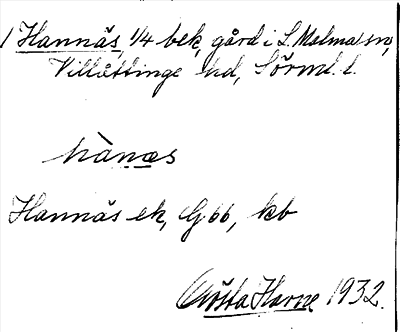 1 Hannäs, 1/4 bek, gård i L. Malma sn,
Villåttinge hd, Sörml. l.
hànæs
Hannäs ek, G 66, kb
Gösta Harne 1932.